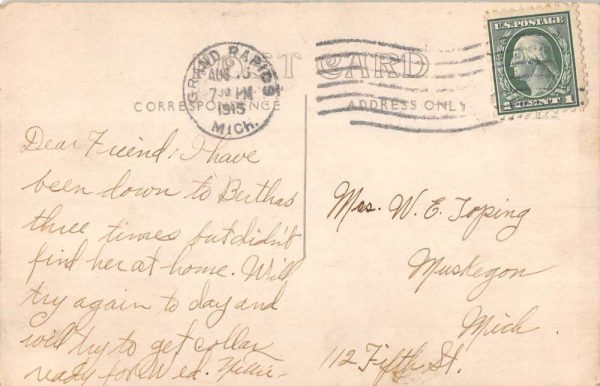 POST CARD
GRAND RAPIDS
AUG
7 PM
1915
MICH.
U.S. POSTAGE
1 CENT 1
CORRESPONDENCE
ADDRESS ONLY
Dear Friend, I have
been down to Berthas
three times but didn't
find her at home. Will
try again to day and
will try to get collar
ready for Wed. Nellie-
Mrs. W. E. Toping
Muskegon
Mich.
112 Fifth St.